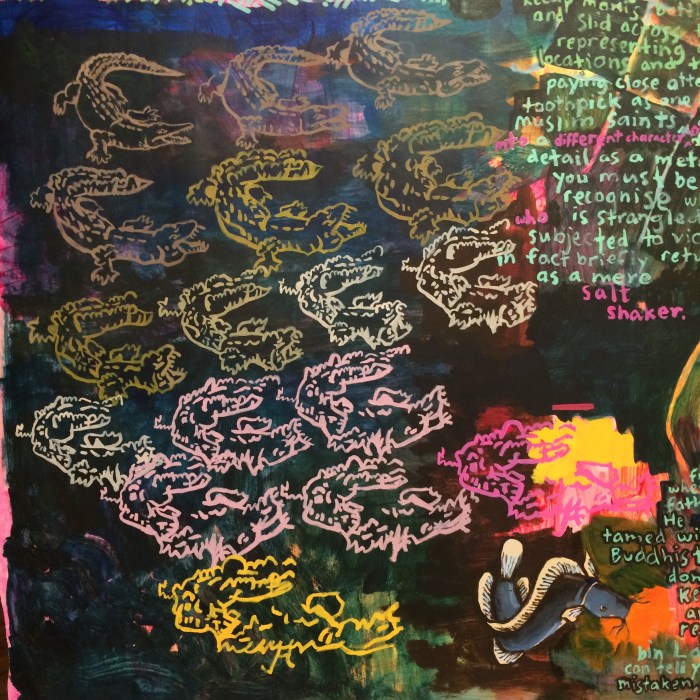 and slid across
representing
locations and t
paying close atte
toothpick as ano
muslim saints
into a different character
detail as a met
you must be
recognise w
who is strangle
subjected to vio
in fact briefly retu
as a mere
salt
shaker.
He
tamed wi
Buddhis
do
ke
a
re
bin La
can tell y
mistaken